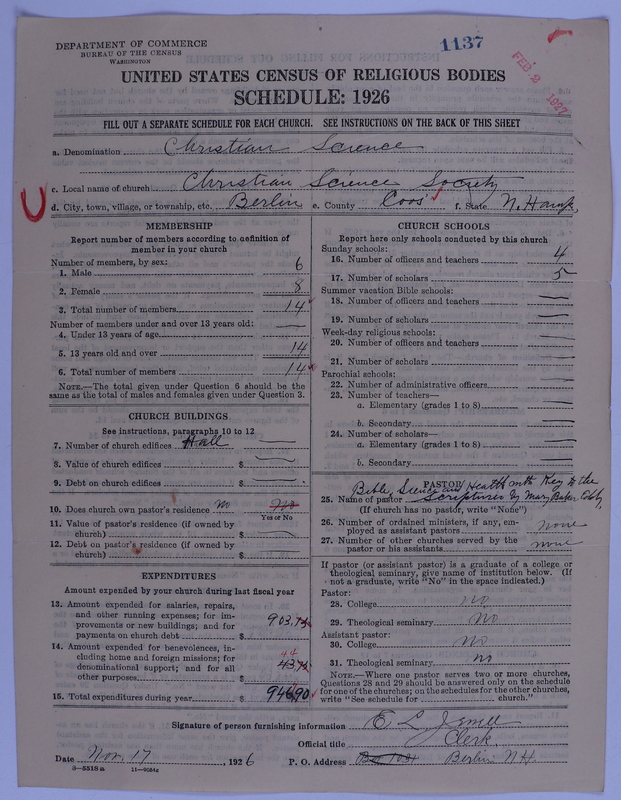 DEPARTMENT OF COMMERCE
BUREAU OF THE CENSUS
WASHINGTON
1137
FEB 2 1927
UNITED STATES CENSUS OF RELIGIOUS BODIES
SCHEDULE: 1926
FILL OUT A SEPARATE SCHEDULE FOR EACH CHURCH. SEE INSTRUCTIONS ON THE BACK OF THIS SHEET
a. Denomination Christian Science
c. Local name of church Christian Science Society
d. City, town, village, or township, etc. Berlin e. County Coos f. State N. Hamp.
MEMBERSHIP
Report number of members according to definition of member in your church
Number of members, by sex:
1. Male 6
2. Female 8
3. Total number of members 14
Number of members under and over 13 years old:
4. Under 13 years of age —
5. 13 years old and over 14
6. Total number of members 14
NOTE.—The total given under Question 6 should be the
same as the total of males and females given under Question 3.
CHURCH BUILDINGS
See instructions, paragraphs 10 to 12
7. Number of church edifices Hall —
8. Value of church edifices $ —
9. Debt on church edifices $ —
10. Does church own pastor's residence No No
Yes or No
11. Value of pastor's residence (if owned by
church) $ —
12. Debt on pastor's residence (if owned by
church) $
EXPENDITURES
Amount expended by your church during last fiscal year
13. Amount expended for salaries, repairs,
and other running expenses; for im-
provements or new buildings; and for
payments on church debt $ 903.
14. Amount expended for benevolences, in-
cluding home and foreign missions; for
denominational support; and for all
other purposes $ 44
43
15. Total expenditures during year $ 946.90
CHURCH SCHOOLS
Report here only schools conducted by this church
Sunday schools:
16. Number of officers and teachers 4
17. Number of scholars 5
Summer vacation Bible schools:
18. Number of officers and teachers —
19. Number of scholars —
Week-day religious schools:
20. Number of officers and teachers —
21. Number of scholars —
Parochial schools:
22. Number of administrative officers —
23. Number of teachers—
a. Elementary (grades 1 to 8) —
b. Secondary —
24. Number of scholars—
a. Elementary (grades 1 to 8) —
b. Secondary —
PASTOR
Bible, Science and Health with Key to the
25. Name of pastor Scriptures by Mary Baker Eddy
(If church has no pastor, write "None")
26. Number of ordained ministers, if any, em-
ployed as assistant pastors none
27. Number of other churches served by the
pastor or his assistants none
If pastor (or assistant pastor) is a graduate of a college or
theological seminary, give name of institution below. (If
not a graduate, write "No" in the space indicated.)
Pastor:
28. College no
29. Theological seminary No
Assistant pastor:
30. College No
31. Theological seminary no
NOTE.—Where one pastor serves two or more churches,
Questions 28 and 29 should be answered only on the schedule
for one of the churches; on the schedules for the other churches,
write "See schedule for church."
Signature of person furnishing information E. L.
Official title Clerk.
Date Nov. 17, 1926 P. O. Address Berlin N.H.
8—5518 a 11—9034c